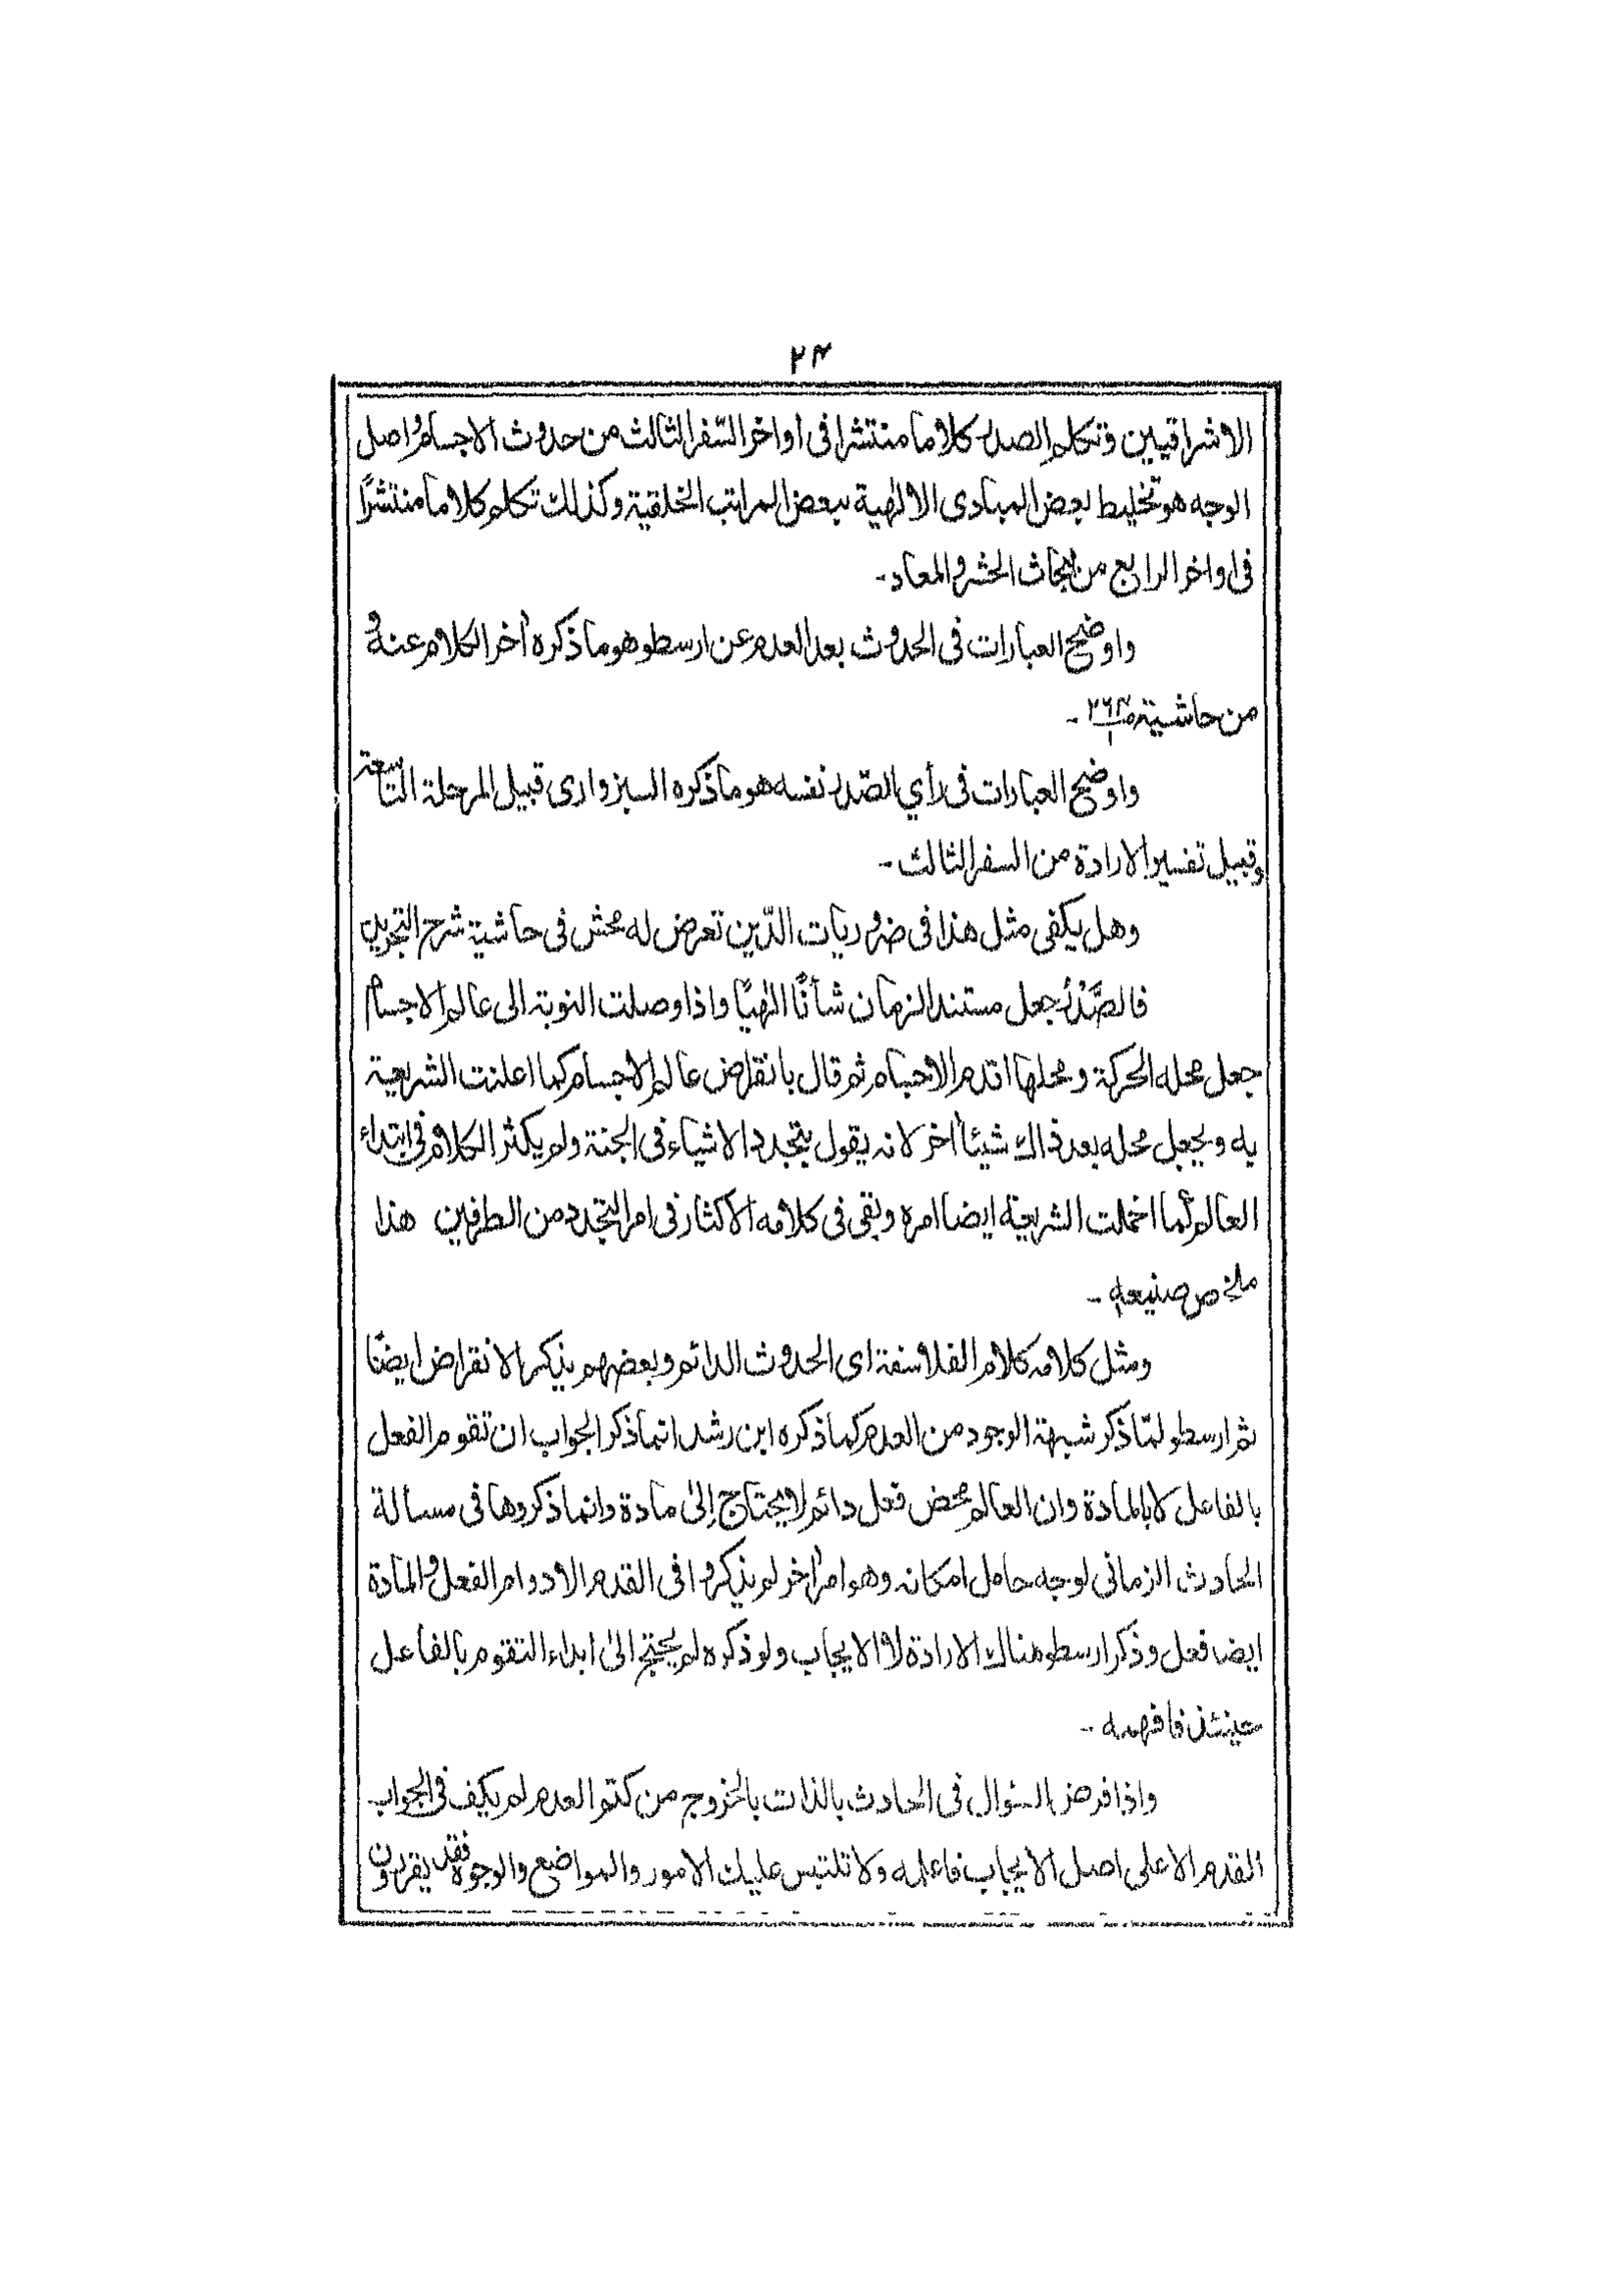 ٢٤
الاشراقيين وتكلم الصدر كلاما منتشرا فى اواخر السّفر الثالث من حدوث الاجسام واصل
الوجه هو تخليط بعض المبادى الالٰهية ببعض المراتب الخلقية وكذلك تكلم كلاما منتشرًا
فى اواخر الرابع من ابحاث الحشر والمعاد-
واوضح العبارات فى الحدوث بعد العدم عن ارسطو هو ما ذكره اٰخر الكلام عنه و
من حاشية ص٢٦٤/١ -
واوضح العبارات فى رأي الصّدر نفسه هو ما ذكره السبزوارى قبيل المرحلة التاسعة
وقبيل تفسير الارادة من السفر الثالث-
وهل يكفى مثل هذا فى ضروريات الدّين تعرض له محش فى حاشية شرح التجريد
فالصَّدْرُ جعل مستند الزمان شأنًا الٰهيًا واذا وصلت النوبة الى عالم الاجسام
جعل محله الحركة ومحلها اقدم الاجسام ثم قال بانقراض عالم الاجسام كما اعلنت الشريعة
به ويجعل محله بعد ذاك شيئا اٰخر لانه يقول بتجدد الاشياء فى الجنة ولم يكثر الكلام فى ابتداء
العالم كما اخملت الشريعة ايضا امره وبقى فى كلامه الاكثار فى امر التجدد من الطرفين هذا
ملخص صنيعه -
ومثل كلامه كلام الفلاسفة اى الحدوث الدائم وبعضهم يذكر الانقراض ايضًا
ثم ارسطو لمّا ذكر شبهة الوجود من العدم كما ذكره ابن رشد انما ذكر الجواب ان تقوم الفعل
بالفاعل لا بالمادة وان العالم محض فعل دائم لا يحتاج إلىٰ مادة وانما ذكروها فى مسالة
الحادث الزمانى لوجه حامل امكانه وهو امر اٰخر لم يذكروا فى القدم الا دوام الفعل والمادة
ايضا فعل وذكر ارسطو هناك الارادة لا الايجاب ولو ذكره لم يحتج الىٰ ابداء التقوم بالفاعل
حينئذ فافهمه -
واذا فرض السؤال فى الحادث بالذات بالخروج من كتم العدم لم يكف فى الجواب
القدم الا على اصل الايجاب فاعلمه ولا تلتبس عليك الامور والمواضع والوجوه فقد يقررون